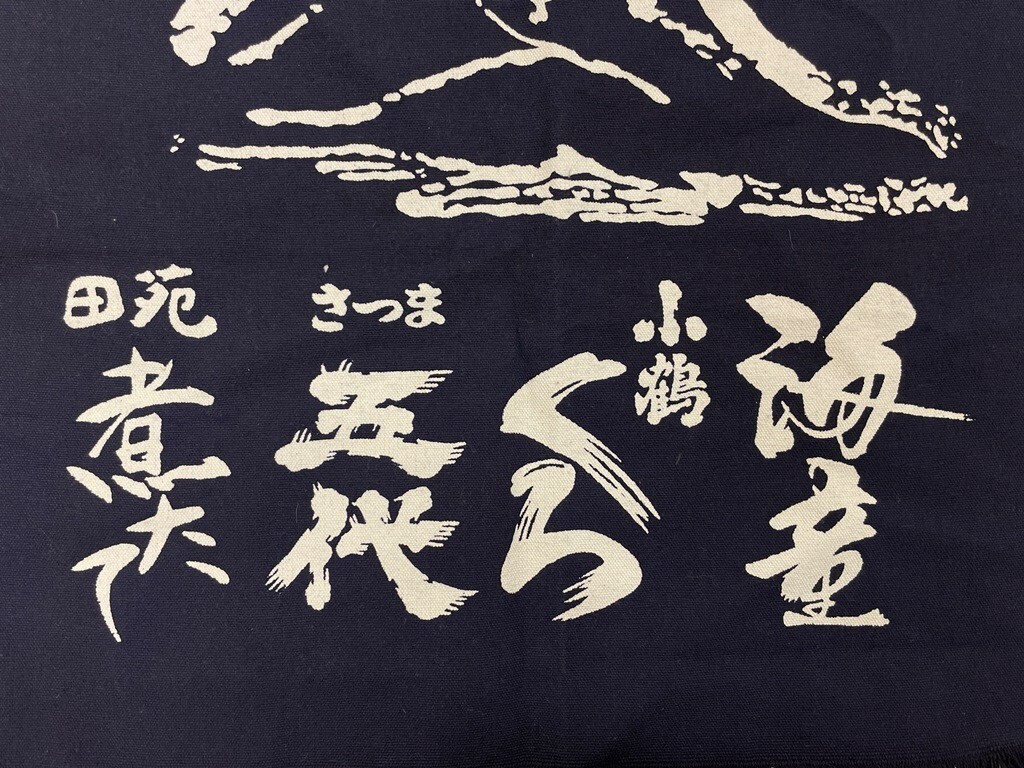 海童
小鶴
くろ
さつま
五代
田苑
煮たて